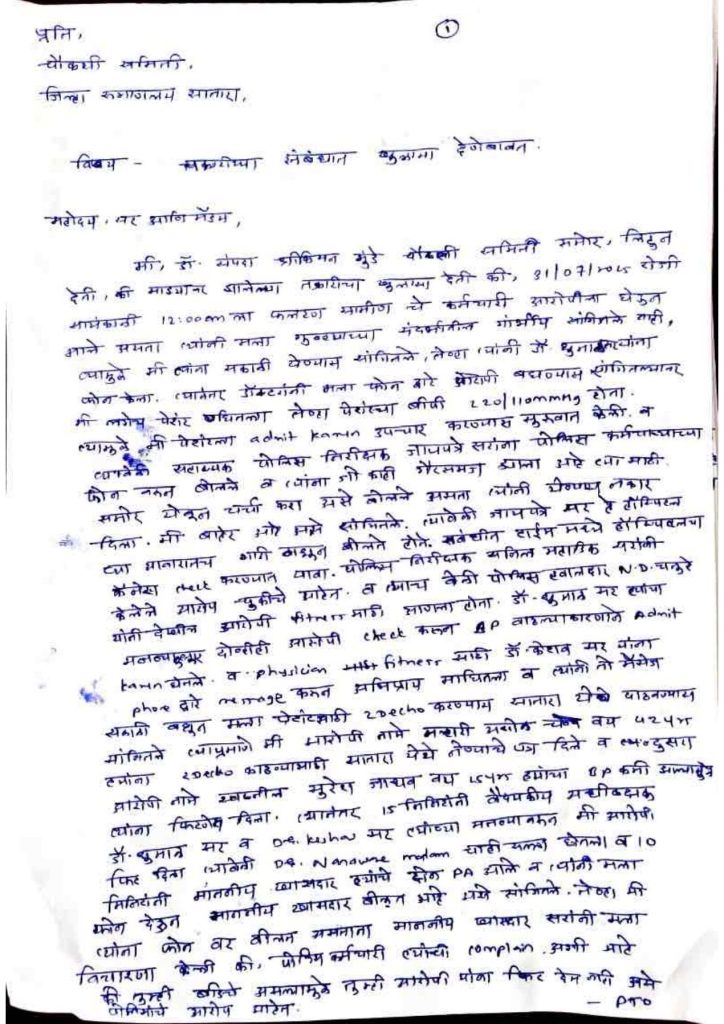 ①
प्रति,
चौकशी समिती,
जिल्हा रुग्णालय सातारा,
विषय - तक्रारीच्या संबंधात खुलासा देणेबाबत.
महोदय, सर आणि मॅडम,
मी, डॉ. संपदा श्रीकिसन मुंडे चौकशी समिती समोर, लिहून
देती, की माझ्यावर झालेल्या तक्रारीचा खुलासा देती की, 31/07/2025 रोजी
12:00am ला फलटण ग्रामीण चे कर्मचारी आरोपीला घेऊन
आले असता त्यांनी मला गुन्ह्याच्या संदर्भातील गांभीर्य सांगितले नाही,
त्यामुळे मी त्यांना सकाळी येण्यास सांगितले, तेव्हा त्यांनी डॉ. धुमाळ
फोन केला. त्यानंतर डॉक्टरांनी मला फोन द्वारे आरोपी बघण्यास सांगितल्यानंतर
मी लगेच पेशंट बघितला तेव्हा पेशंटचा बीपी 220/110mmHg होता.
त्यामुळे मी पेशंटला admit करून उपचार करण्यास सुरुवात केली. व
त्यावेळी सहाय्यक पोलिस निरीक्षक जायपत्रे सरांना पोलिस कर्मचाऱ्याच्या
फोन वरून बोलले व त्यांना जी काही गैरसमज झाला आहे त्या साठी
समोर येऊन चर्चा करा असे बोलले असता त्यांनी येण्यास नकार
दिला. मी बाहेर आहे असे सांगितले. त्यावेळी जायपत्रे सर हे हॉस्पिटल
च्या आवारातच गाडी बोलते होते. संबंधित टाईम मध्ये हॉस्पिटलचा
कॅमेरा check करण्यात यावा. पोलिस निरीक्षक सुनिल महाडिक सरांनी
केलेले आरोप चुकीचे आहेत. व त्याच वेळी पोलिस हवालदार N.D. चतुरे
यांनी देखील आरोपी fitness साठी आणला होता. डॉ. धुमाळ सर त्यांच्या
दोन्हीही आरोपी check करून BP वाढल्याकारणाने Admit
करून घेतले. व physician fitness साठी डॉ. केशव सर यांना
phone द्वारे message करून अभिप्राय मागितला व त्यांनी तो मॅसेज
सकाळी बघून मला पेशंटसाठी 2Decho करण्यास सातारा येथे पाठवण्यास
सांगितले त्याप्रमाणे मी आरोपी नामे वय 42yr
ह्यांना 2Decho काढण्यासाठी सातारा येथे नेण्याचे पत्र दिले व दुसरा
आरोपी नामे स्वप्नील सुरेश जाधव वय ह्यांचा BP कमी झाल्यामुळे
त्यांना फिटनेस दिला. त्यानंतर 15 मिनिटांनी वैद्यकीय अधीक्षक
डॉ. धुमाळ सर व DR. Keshav सर त्यांच्या मी आरोपी
फिट दिला त्यावेळी DR. madam चाही सल्ला घेतला व 10
मिनिटांनी माननीय खासदार ह्यांचे दोन PA आले व त्यांनी मला
फोन देऊन माननीय खासदार बोलत आहे असे सांगितले. तेव्हा मी
त्यांना फोन वर बोलत असताना माननीय खासदार सरांनी मला
विचारणा केली की, पोलिस कर्मचारी त्यांची complain अशी आहे
की तुम्ही बीडचे असल्यामुळे तुम्ही आरोपी यांना फिट देत नाही असे
पोलिसांचे आरोप आहेत.
- PTO